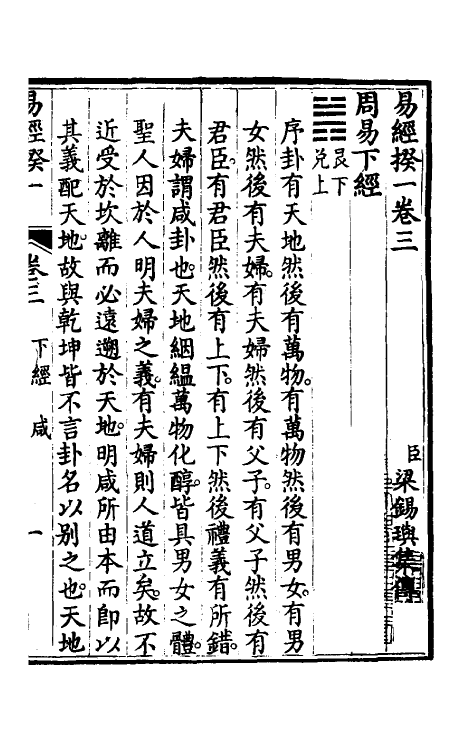 易經揆一卷三
臣梁錫璵集傳
周易下經
䷞艮下兌上
序卦有天地然後有萬物。有萬物然後有男女。有男
女然後有夫婦。有夫婦然後有父子。有父子然後有
君臣。有君臣然後有上下。有上下然後禮義有所錯。
夫婦謂咸卦也。天地絪縕萬物化醇。皆具男女之體。
聖人因於人明夫婦之義。有夫婦則人道立矣。故不
近受於坎離而必遠遡於天地。明咸所由本而即以
其義配天地。故與乾坤皆不言卦名以別之也。天地
易經揆一 卷三 下經 咸 一